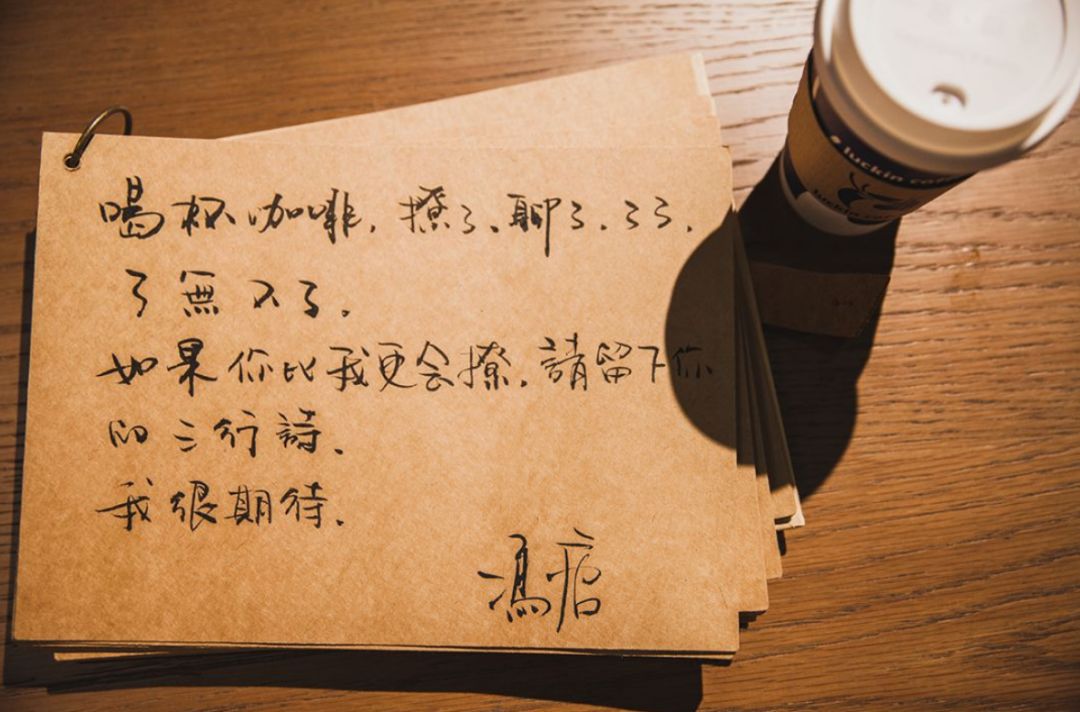 喝杯咖啡,撩了、聊了、了了,
了無 了.
如果你比我更会撩,請留下你
的三行詩.
我很期待.
馮唐
luckin cof
luckin